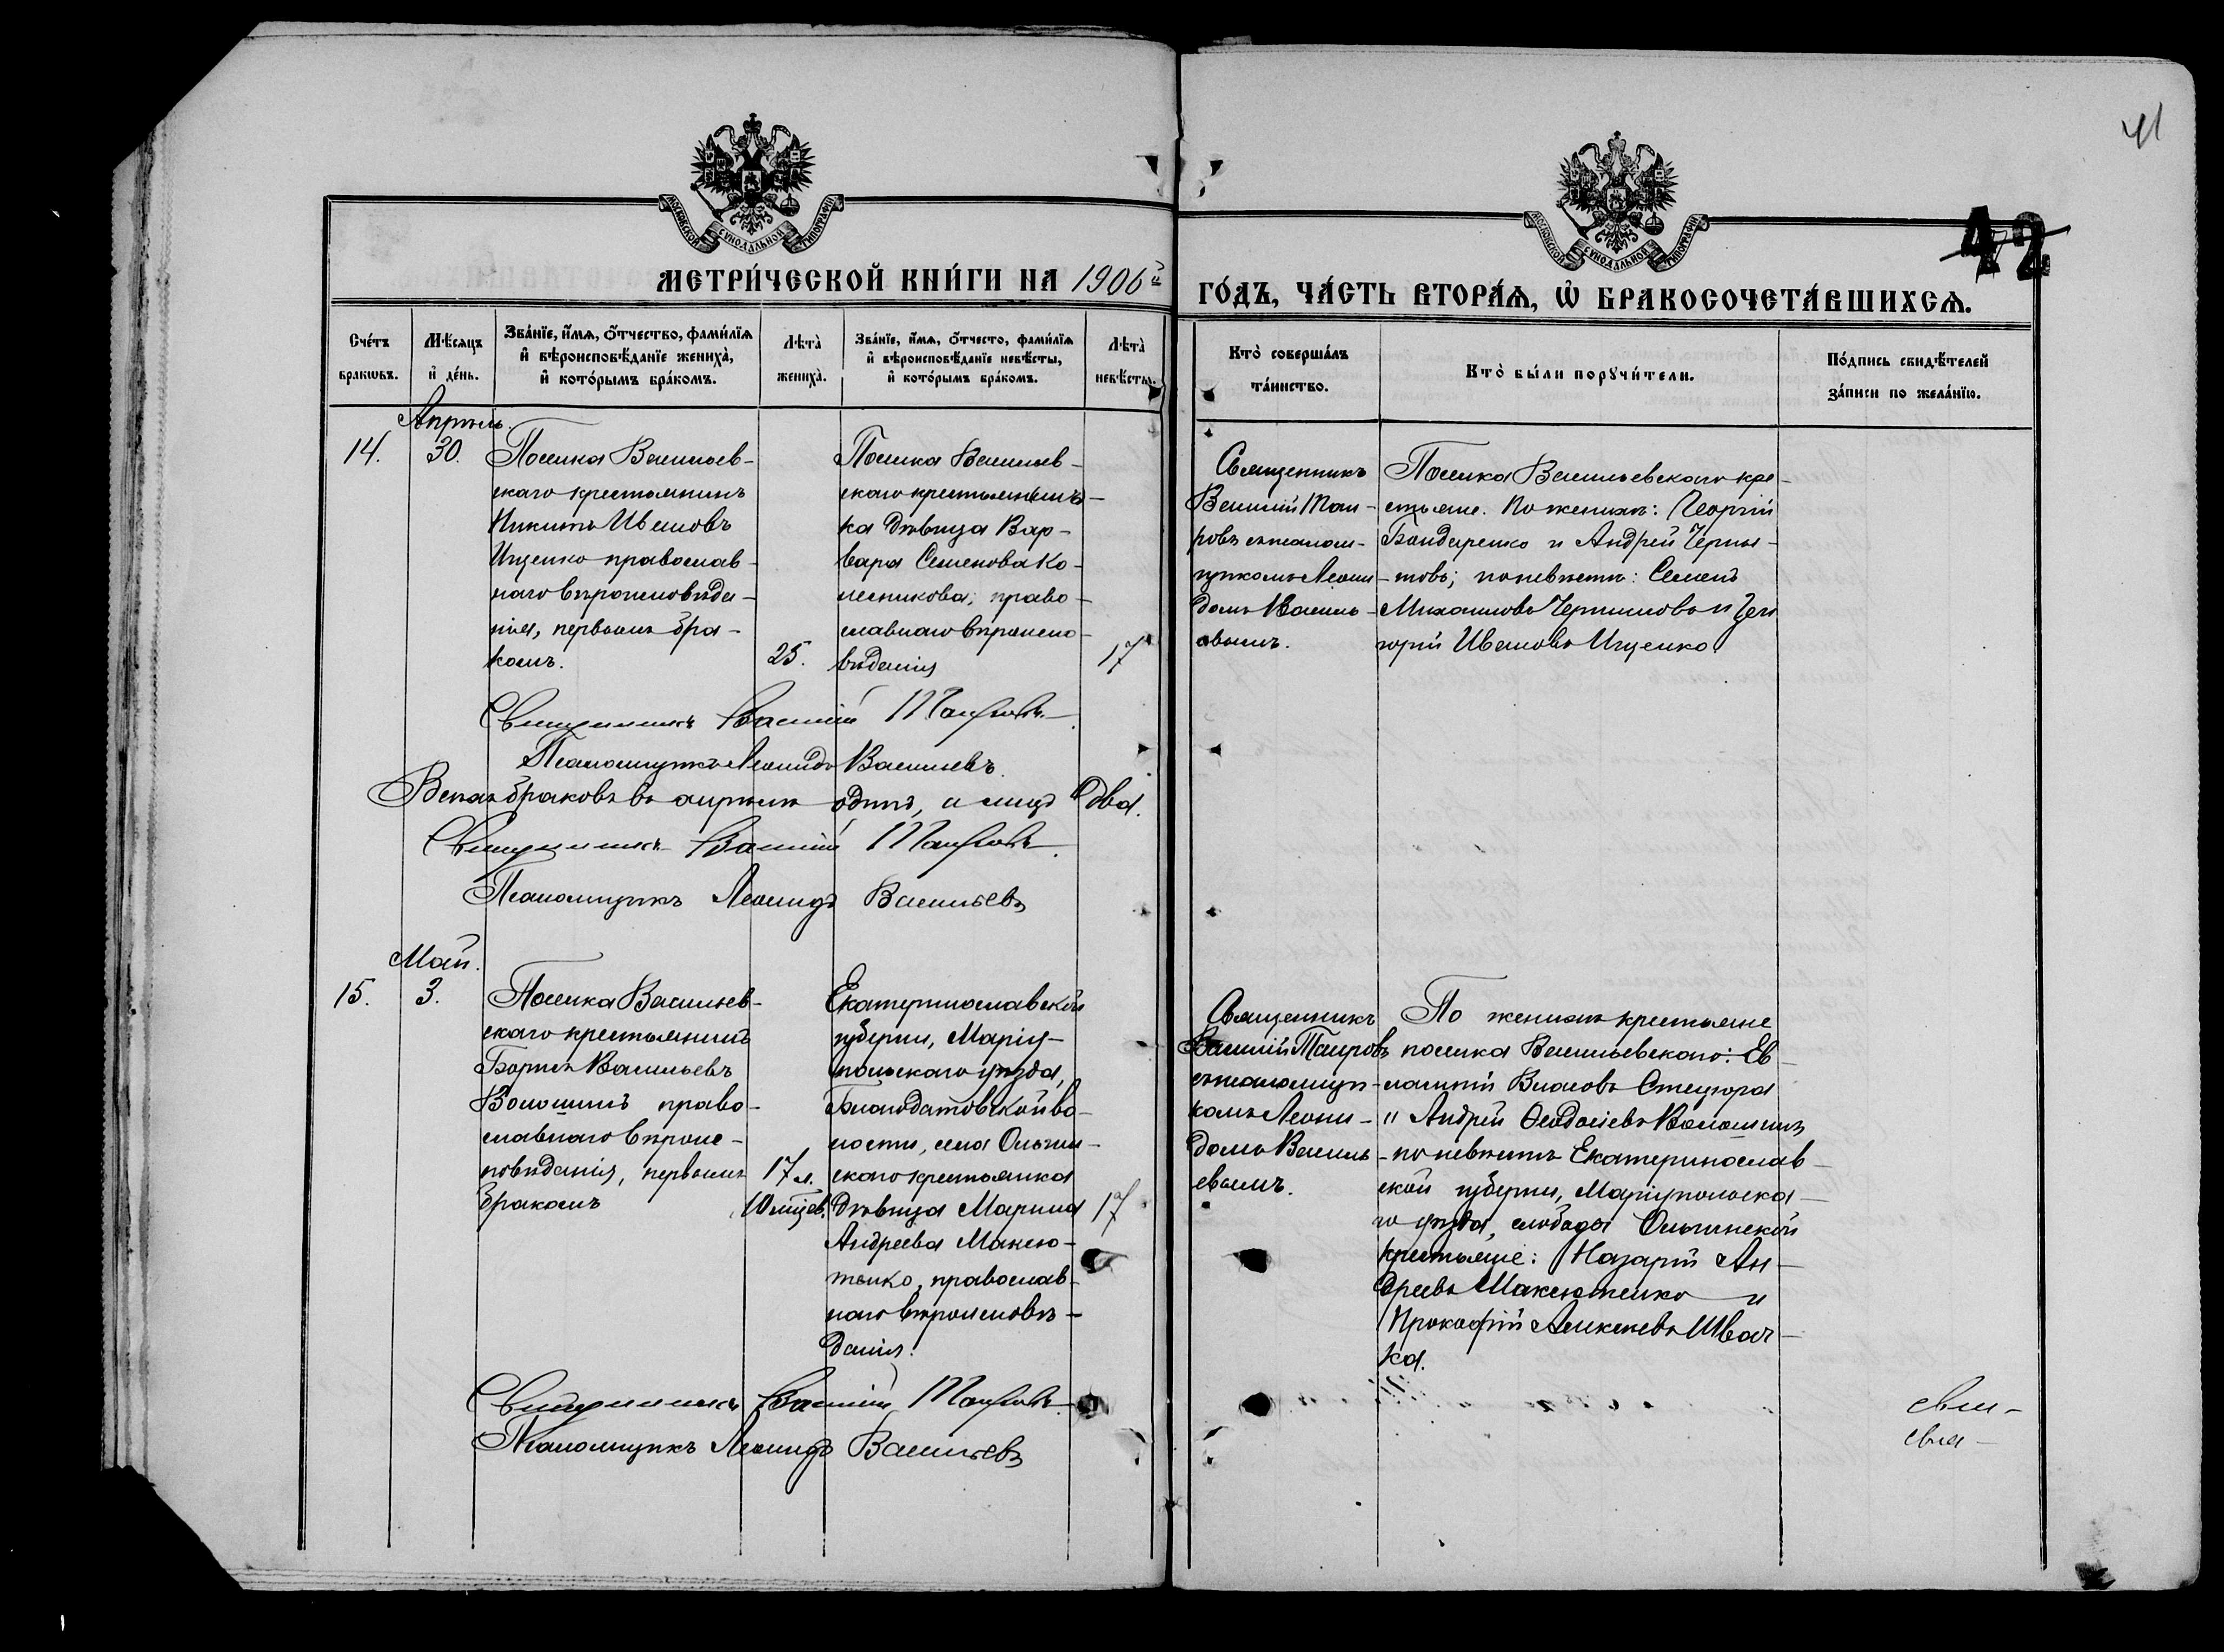 41
42
МОСКОВСКОЙ СѴНОДАЛЬНОЙ ТИПОГРАФІИ
МОСКОВСКОЙ СѴНОДАЛЬНОЙ ТИПОГРАФІИ
МЕТРИ́ЧЕСКОЙ КНИ́ГИ НА 1906й
ГО́ДЪ, ЧА́СТЬ ВТОРА́Ѧ, Ѡ БРАКОСОЧЕТА́ВШИХСѦ.
Сче́тъ
бракѡвъ.
Мѣ́сяцъ
и҆ де́нь.
Зва́нїе, и҆́мѧ, ѻ҆́тчество, фами́лїѧ
и҆ вѣроисповѣ́данїе жениха̀,
и҆ кото́рымъ бра́комъ.
Лѣта̀
жениха̀.
Зва́нїе, и҆́мѧ, ѻ҆́тчесто, фами́лїѧ
и҆ вѣроисповѣ́данїе невѣ́сты,
и҆ кото́рымъ бра́комъ.
Лѣта̀
невѣ́сты.
Кто̀ соверша́лъ
та́инство.
Кто̀ бы́ли порꙋчи́тели.
По́дпись свидѣ́телей
за́писи по жела́нїю.
Апрѣль.
14.
30.
Поселка Васильев-
скаго крестьянинъ
Никита Ивановъ
Ищенко православ-
наго вѣроисповѣда-
нія, первымъ бра-
комъ.
25.
Поселка Васильев-
скаго крестьян
ка дѣвица Вар-
вара Семенова Ко-
лесникова, право-
славнаго вѣроиспо-
вѣданія
17
Священникъ
Василій Таи-
ровъ съ псалом-
щикомъ Леони-
домъ Василь-
евымъ.
Поселка Васильевскаго кре-
стьяне. По женихѣ: Георгій
Бондаренко и Андрей Черны-
товъ; по невѣстѣ: Семенъ
Михаиловъ и Гри
горій Ивановъ Ищенко
Священникъ Василій Таировъ.
Псаломщикъ Леонидъ Васильевъ.
Всѣхъ браковъ въ апрѣлѣ одинъ, а лицъ два.
Священникъ Василій Таировъ.
Псаломщикъ Леонидъ Васильевъ
Май.
15.
3.
Поселка Васильев-
скаго крестьянинъ
Борисъ Васильевъ
Волошинъ право-
славнаго вѣроис-
повѣданія, первымъ
бракомъ
17 л.
10 мѣсяц.
Екатеринославской
губерніи, Маріу-
польскаго уѣзда,
Благодатовской во-
лости, села Ольгин-
скаго крестьянка
дѣвица Марина
Андреева Максю-
тенко, православ-
наго вѣроисповѣ-
данія.
17
Священникъ
Василій Таировъ
съ псаломщи-
комъ Леони-
домъ Василь-
евымъ.
По женихѣ крестьяне
поселка Васильевскаго: Ев-
лампій Власовъ Стецюра
и Андрей Ѳеодосіевъ Волошинъ
по невѣстѣ Екатеринослав-
ской губерніи, Маріупольска-
го уѣзда, слободы Ольгинской
крестьяне: Назарій Ан-
дреевъ Максютенко и
Прокофій Алексѣевъ Швач-
ка.
Священникъ Василій Таировъ
Псаломщикъ Леонидъ Васильевъ